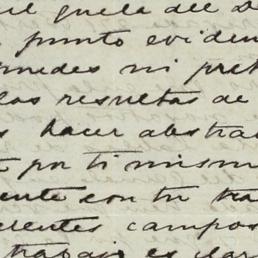 guela del D
punto eviden
puedes ni pret
las resultas de
hacer abstra
por ti mism
ente con tu tra
erentes campos
trabajo es clar